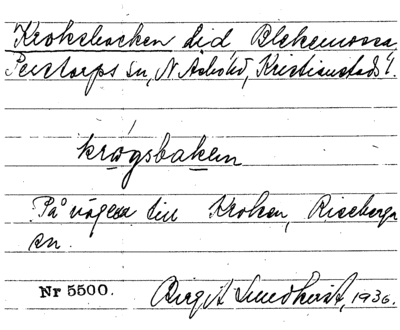 Kroksbacken did Blekemossa
Perstorps sn, N Åsbo hd, Kristianstads l.
krogsbaken
På vägen till Kroken, Riseberga
sn.
Nr 5500. Birgit Lundkvist, 1936.